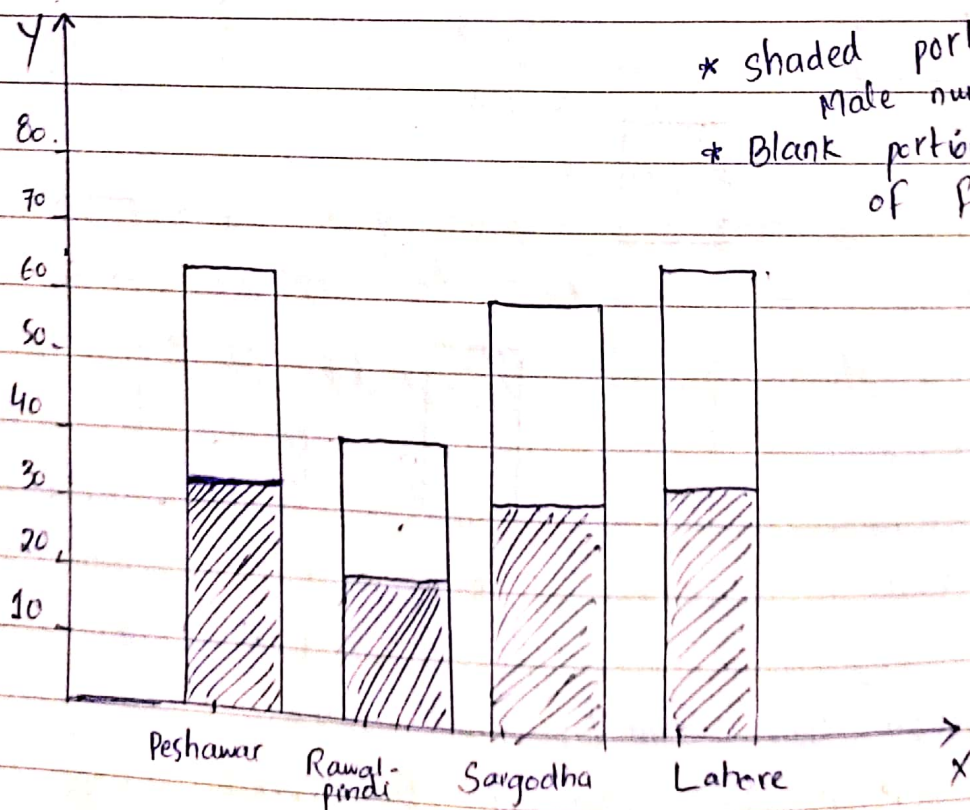 Y
* shaded port
Male nu
80.
* Blank portio
70
of f
60
50
40
30
20
10
Peshawar
Rawal-
pindi
Sargodha
Lahore
X